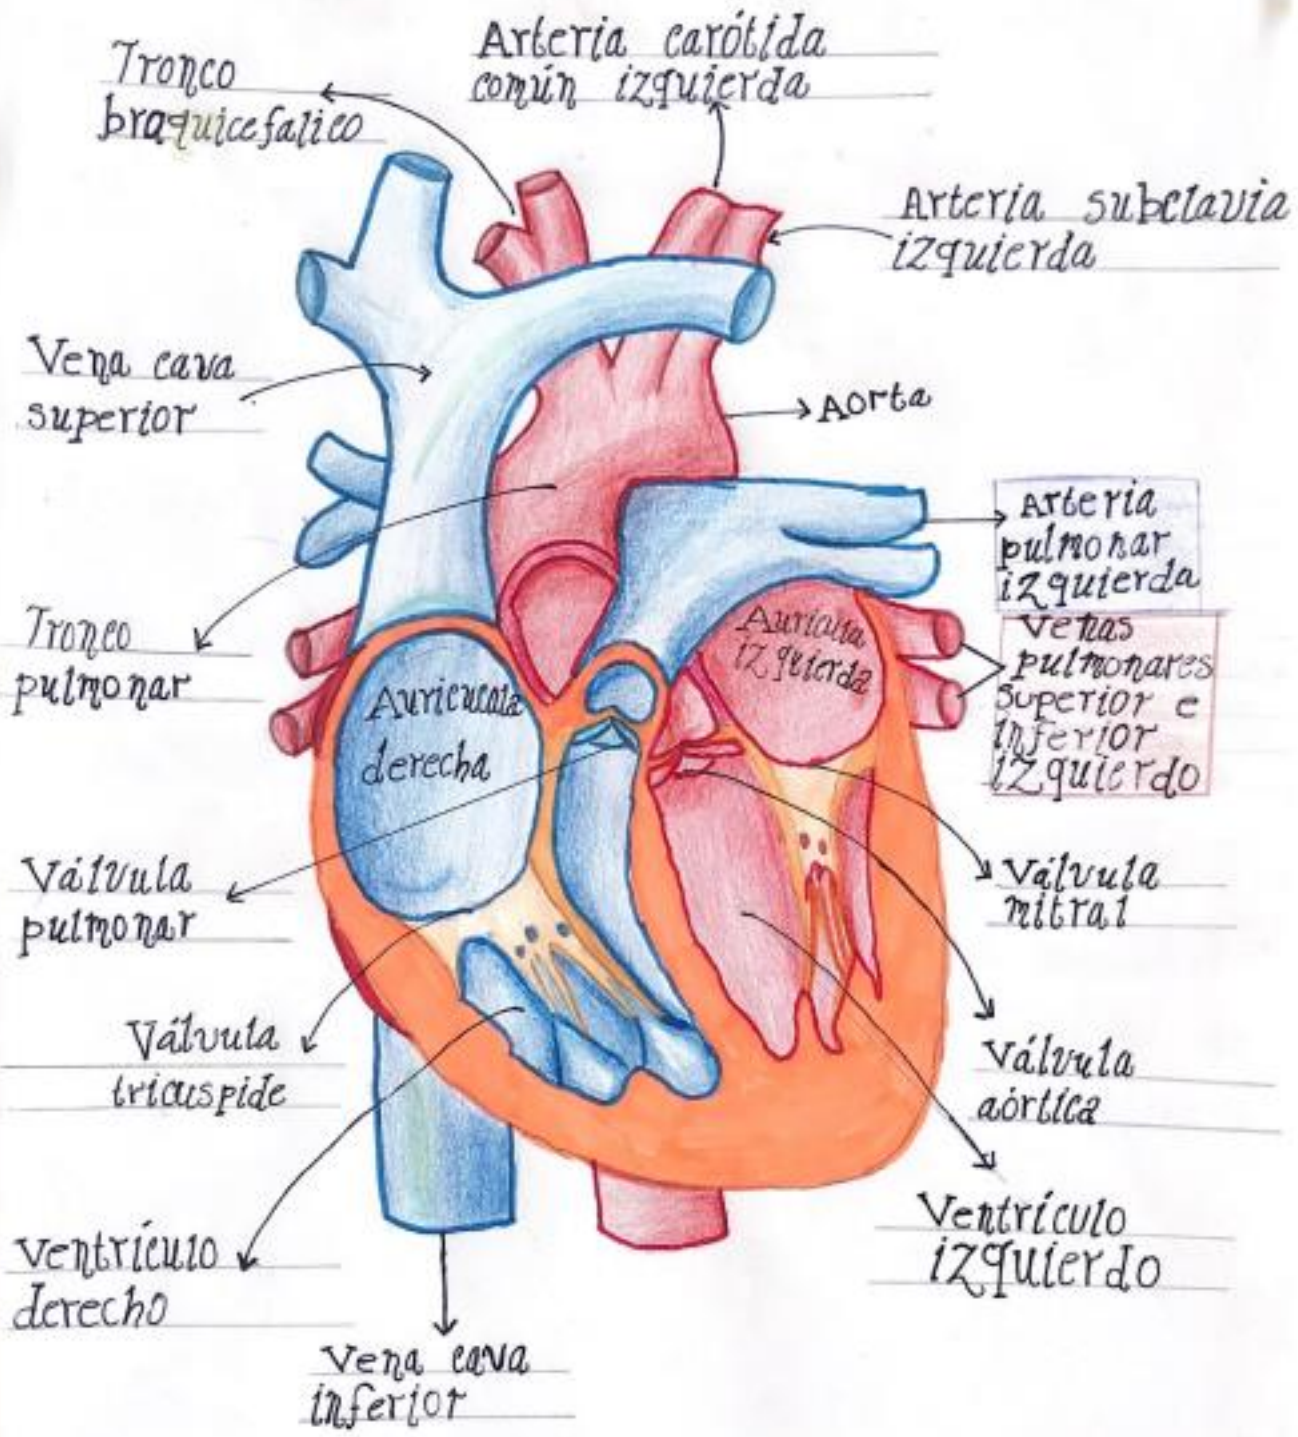 Tronco
braquicefalico
Arteria carótida
común izquierda
Arteria subclavia
izquierda
Vena cava
superior
Aorta
Arteria
pulmonar
izquierda
Venas
pulmonares
superior e
inferior
izquierdo
Tronco
pulmonar
izquierda
derecha
Válvula
pulmonar
Válvula
mitral
Válvula
tricuspide
Válvula
aórtica
Ventrículo
derecho
Ventrículo
izquierdo
Vena cava
inferior